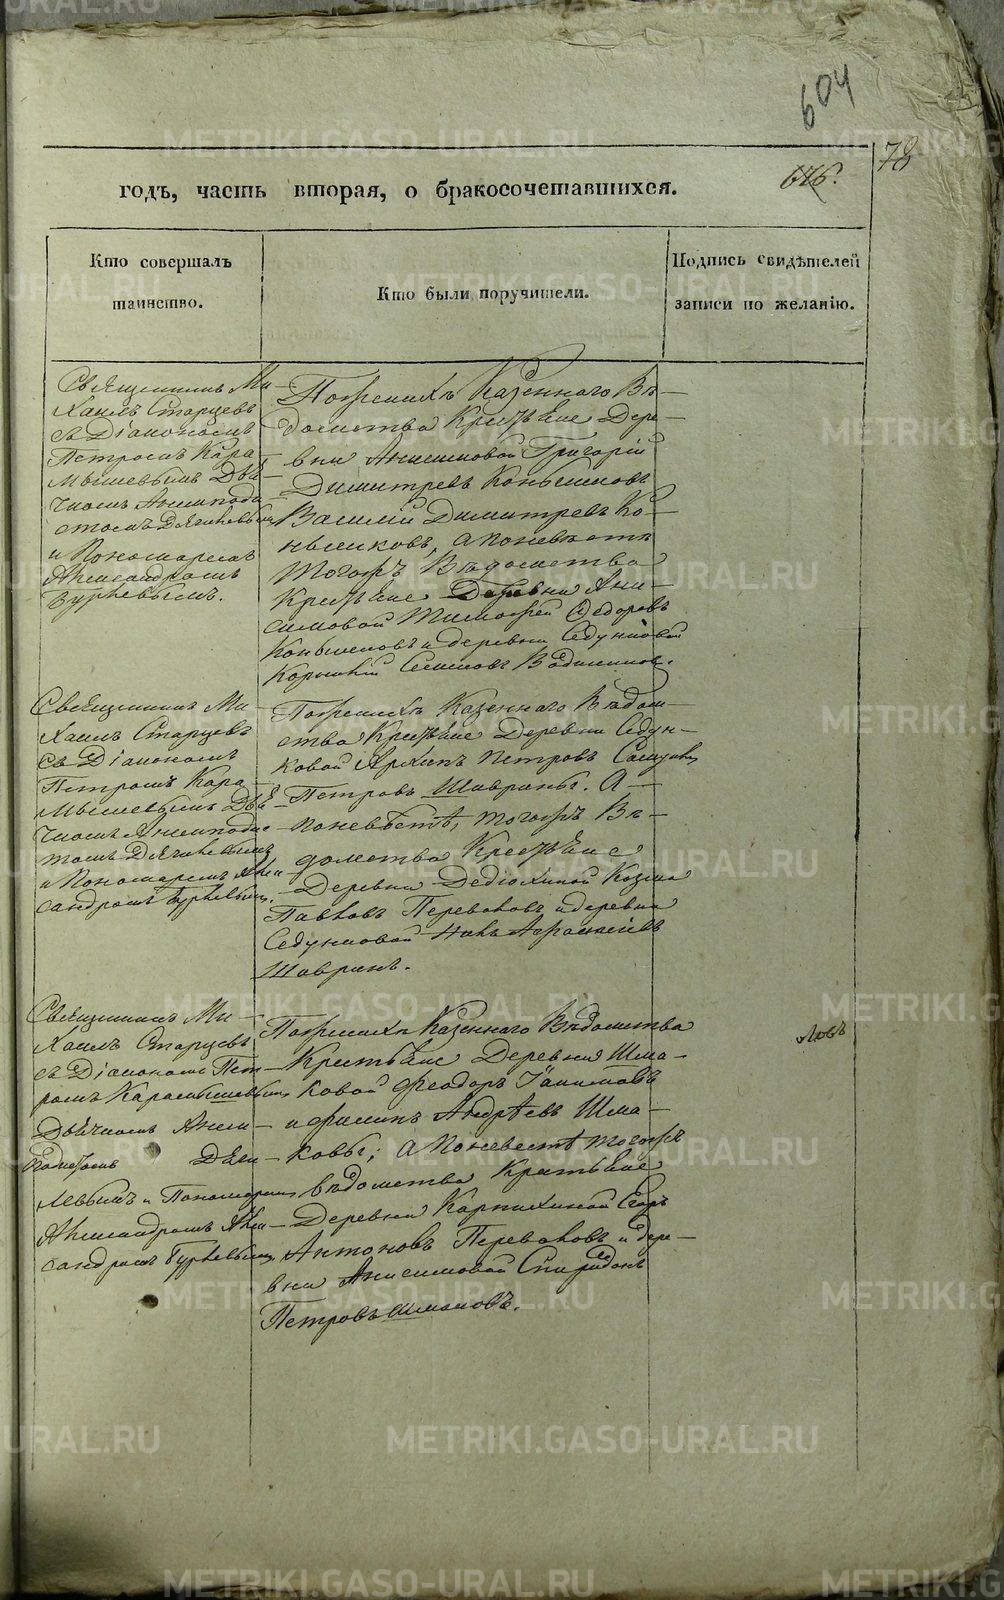 604
78
616.
годъ, часть вторая, о бракосочетавшихся.
Кто совершалъ
таинство.
Кто были поручители.
Подпись свидѣтелей
записи по желанію.
Священникъ Ми-
хаилъ Старцевъ
съ Діакономъ
Петромъ Кара
мышевымъ Дья-
чкомъ
и Пономаремъ
Александромъ
Бурневымъ.
По женихѣ Казеннаго Вѣ-
домства Крестьяне Дере-
вни Анисимовой Григорій
Димитревъ Коньшиковъ
Василій Димитревъ Ко-
ньшиковъ, а по невѣстѣ
тогожъ Вѣдомства
Крестьяне Деревни Ани-
симовой Тимофей Ѳедоровъ
и деревни Седунковой
Священникъ Ми-
хаилъ Старцевъ
съ Діакономъ
Петромъ Кара
мышевымъ Дья-
чкомъ
и Пономаремъ Алек
сандромъ Бурневымъ.
По женихѣ Казеннаго Вѣдом-
ства Крестьяне Деревни Седун-
ковой Архипъ Петровъ
Петровъ Шаврины. А
по невѣстѣ, тогожъ Вѣ-
домства Крестьяне
Деревни Дедюхиной Козма
Павловъ Переваловъ и деревни
Седунковой
Шавринъ.
Священникъ Ми-
хаилъ Старцевъ
съ Діакономъ Пет-
ромъ Карамышевымъ
Дьячкомъ
и Пономаремъ
Александромъ Алек-
сандромъ Бурневымъ.
По женихѣ Казеннаго Вѣдомства
Крестьяне Деревни Шма-
ковой Феодоръ
и Филипъ Андрѣевъ Шма-
ковы; а по невестѣ тогожъ
вѣдомства Крестьяне
Деревни Карпихиной Егоръ
Антоновъ Переваловъ и дере-
вни Анисимовой Спиридонъ
Петровъ Шмаковъ.